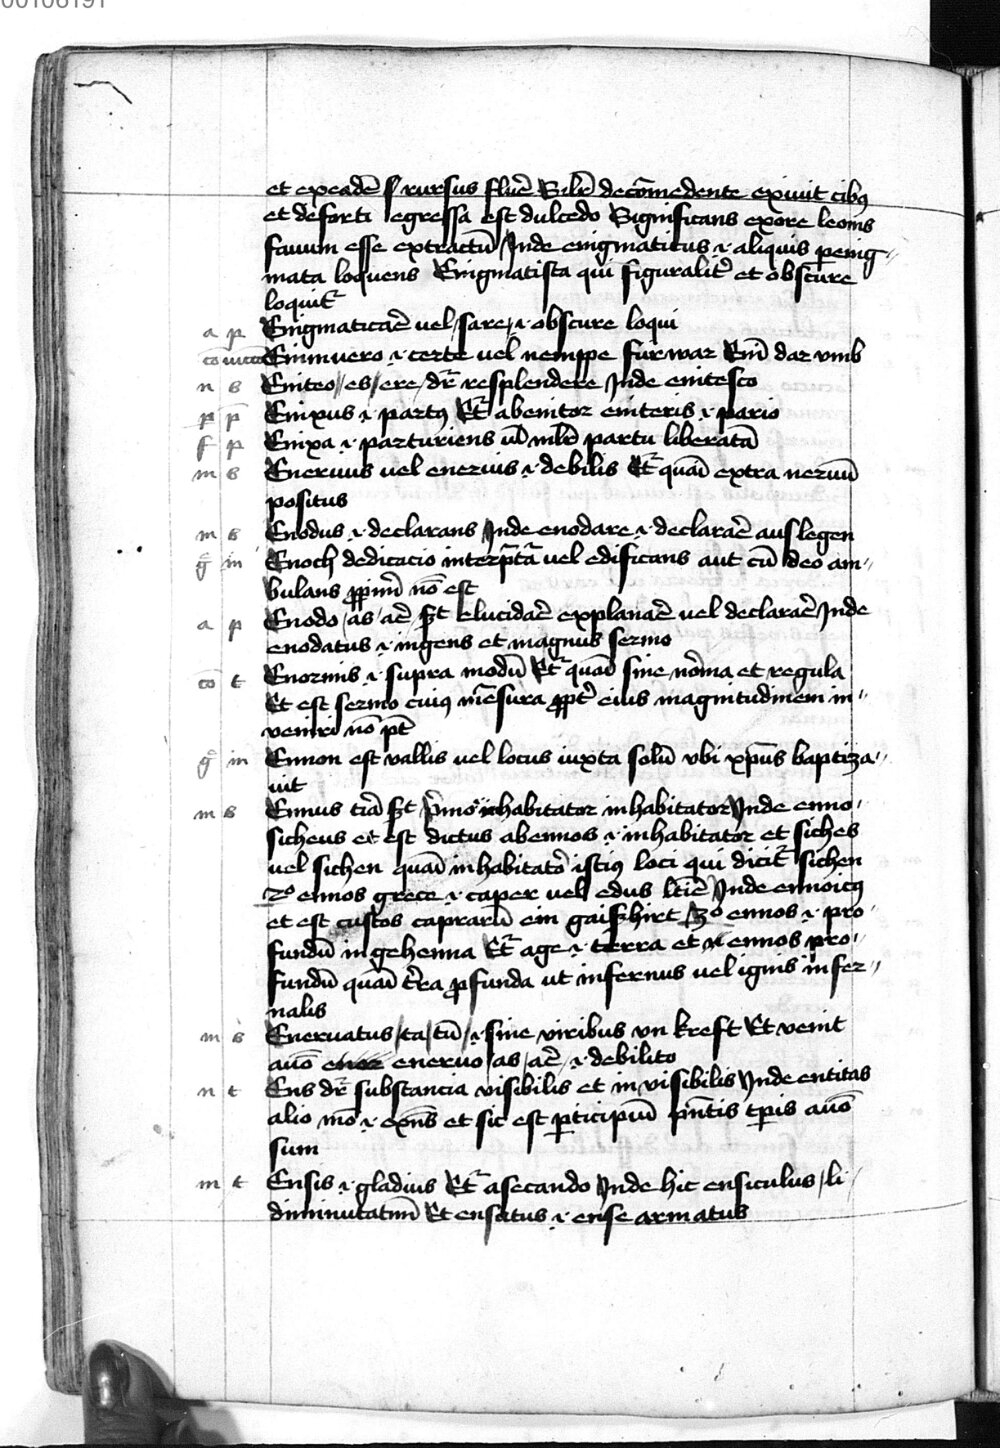 00106191
et exeadē ſ rursus fluē Sılr̄ decōmedente exiuit cibꝯ
et deforti egressa est dulcedo Significans exore leonis
fauum esse extractū Inde enigmaticus ·i· aliquis p enig-
mata loquens Enigmatista qui figuralit̄ et obscure
loquit̄
a p Enigmaticāē vel sare ·i· obscure loqui
Enimuero ·i· certe vel nempe fürwar Eīn dar vmb
n s Eniteo / es / ere / dr̄ resplendere Inde enitesco
p p̄ Enixus ·i· partꝯ Et̄ abenitor eniteris ·i· pario
f p Enixa ·i· parturiens ul̄ mlr̄ partu liberatā
m s Eneruus vel eneruis ·i· debilis Et̄ quāi extra neruū
positus
m s Enodus ·i· declarans Inde enodare ·i· declarāē aus legen
g̊ in Enoch dedicacio interp̄tā vel edificans aut cū deo am-
bulans p̄p̄im̄ nō est
a p Enodo / as / āē ſꝫt elucidāē explanāē vel declarāē Inde
enodatus ·i· ingens et magnus sermo
cō t Enormis ·i· supra modū Et̄ quāi sine nōma et regula
Et est sermo cuiꝯ mēsura p̄p̄t̄ eius magnitudinem in-
veniri nō pt̄
g̊ in Ennon est vallis vel locus iuxta solū vbi xp̄us baptiza-
uit
m s Ennus
inhabitator inhabitator Inde enno-
sicheus et est dictus abennos ·i· inhabitator et siches
vel sichen quāi inhabitatō istiꝯ loci qui dicit̄ sichen
2º ennos grece ·i· caper vel edus lt̄īē Inde ennoicꝯ
et est custos caprarū ein gaiſzhirt 3º ennos ·i· pro-
fundū in gehenna Et̄ age ·i· terra et ennos pro-
fundū quāi t̄ra pfunda ut infernus vel ignis infer-
nalis
m s Eneruatus / ta / tū / ·i· sine viribus vn kreft Et venit
auō eneruo / as / āē / ·i· debilito
n t Ens dr̄ substancia visibilis et in visibilis Inde entitas
alio mō ·i· exn̄s et sic est pticipiū pn̄tis tp̄is auō
sum
m t Ensis ·i· gladius Et̄ asecando Inde hic ensiculus / li
diminutatm̄ Et ensatus ·i· ense armatus